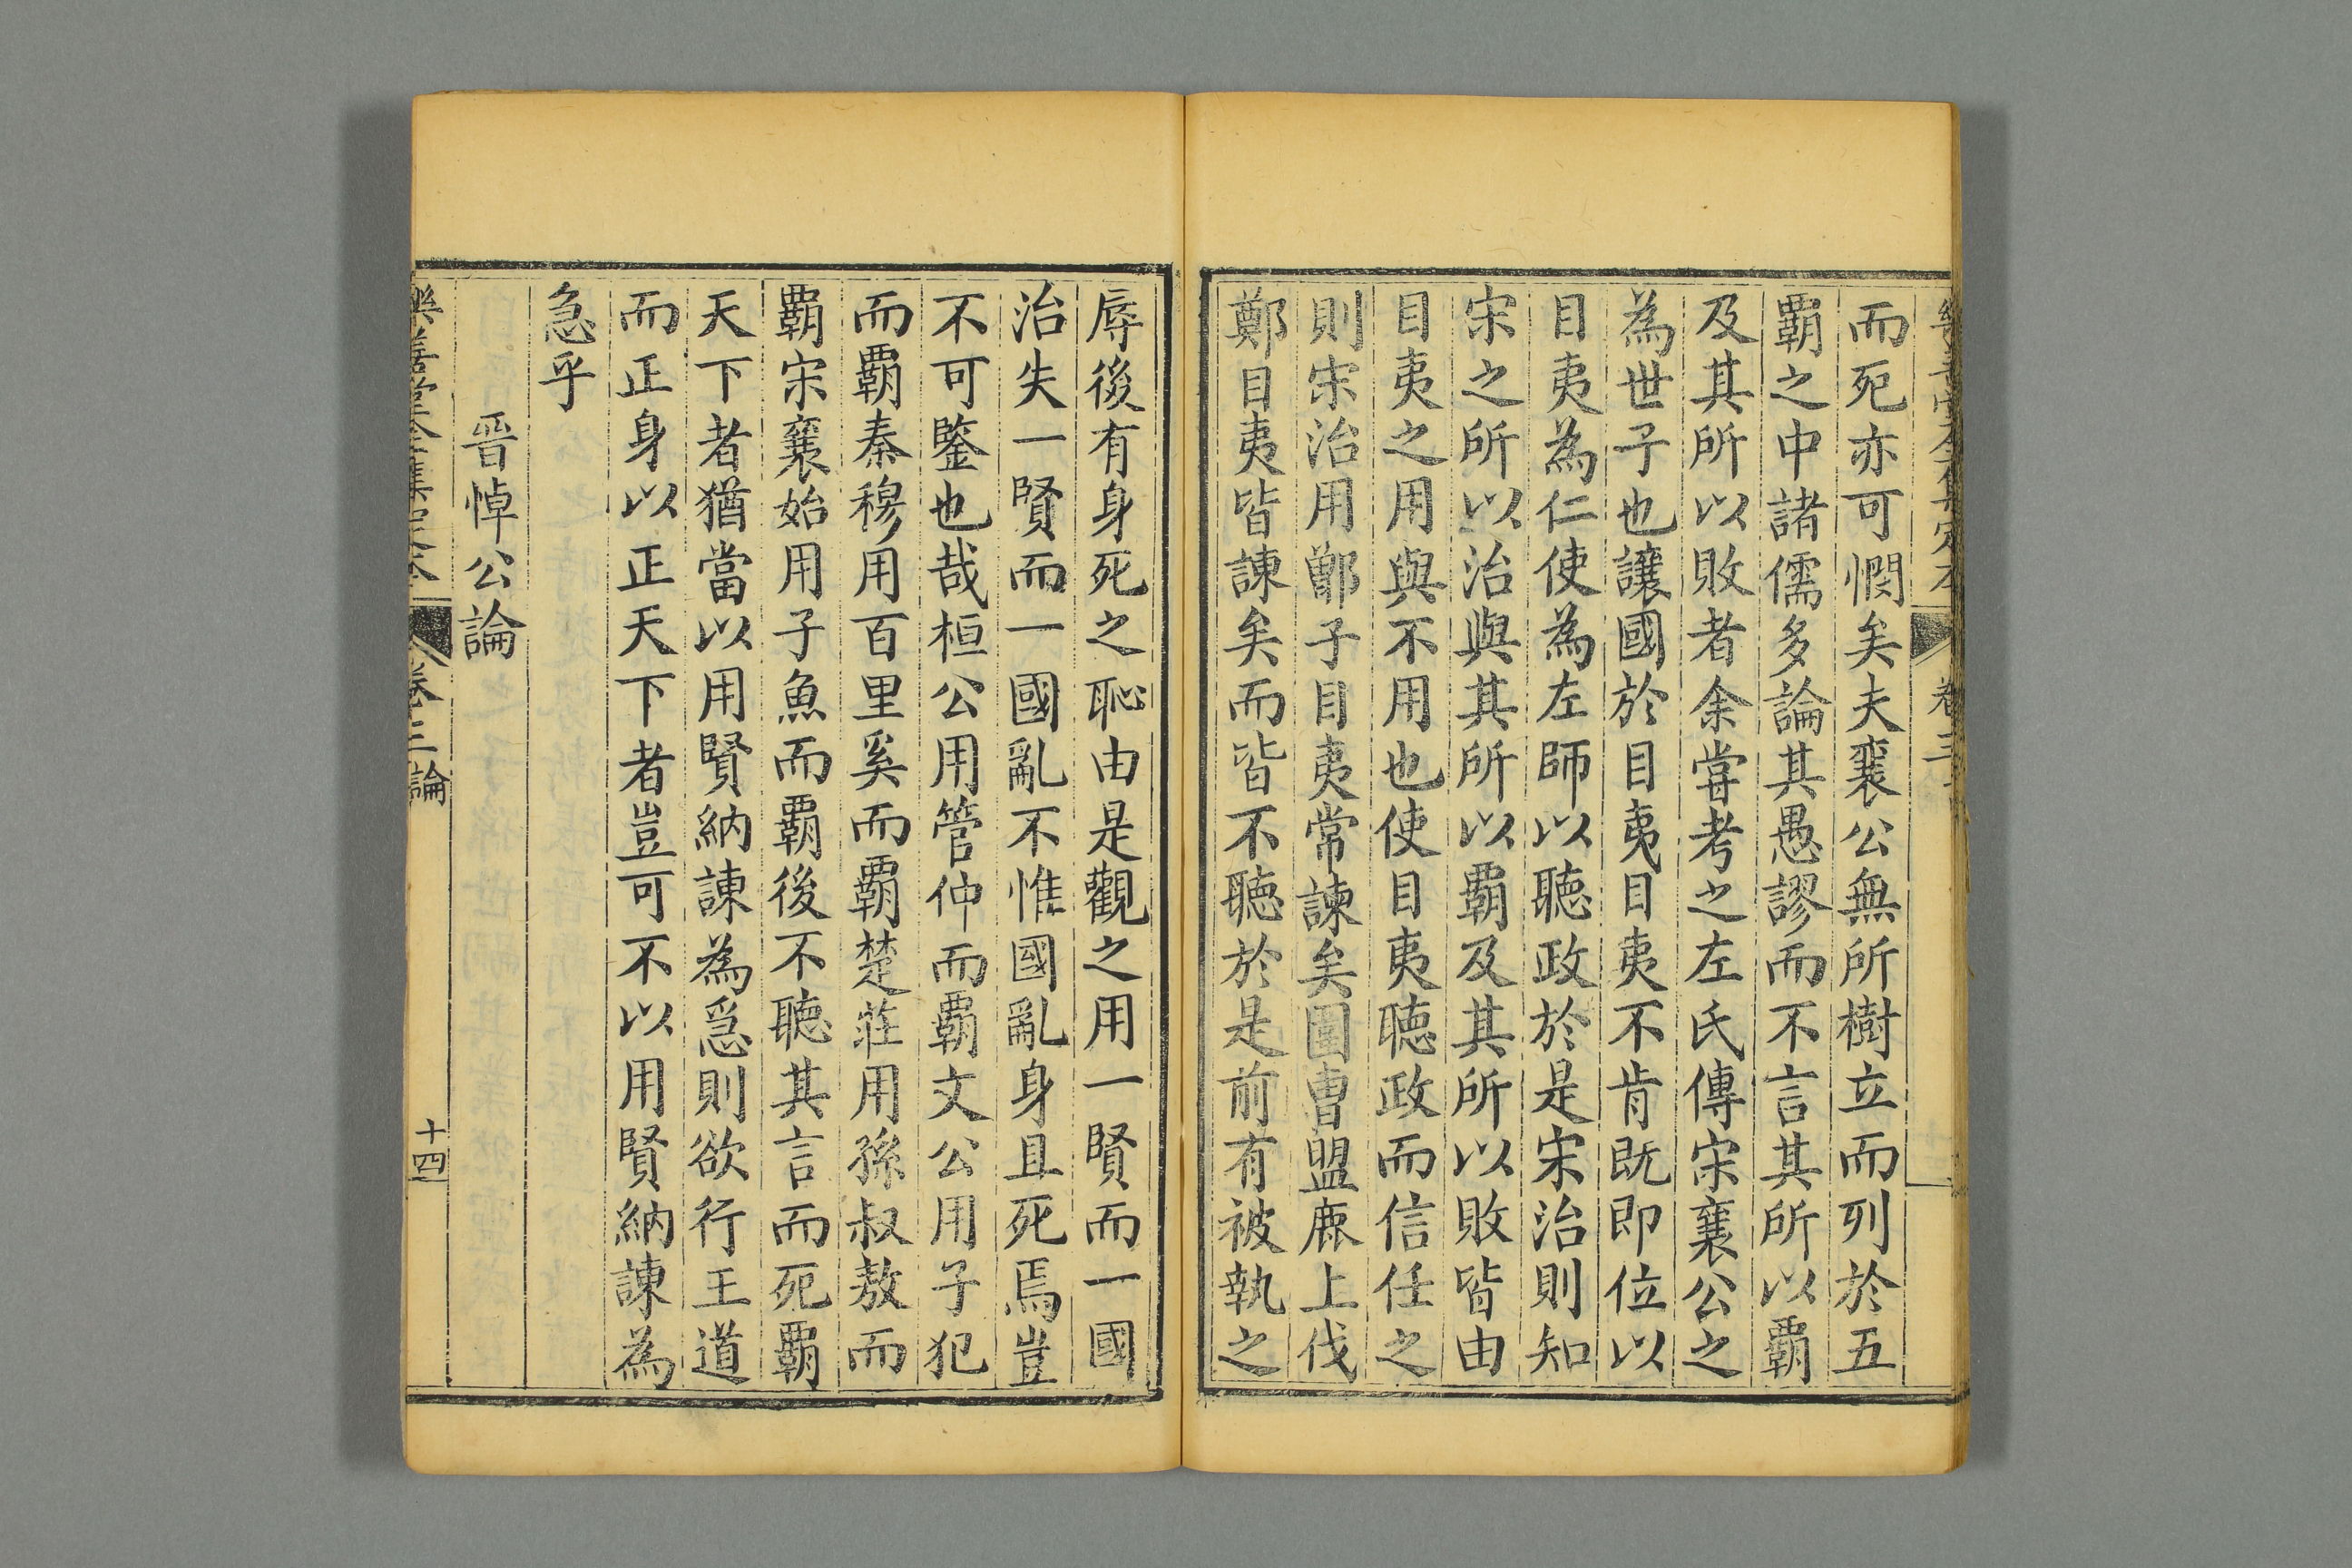 而死亦可憫矣夫襄公無所樹立而列於五
覇之中諸儒多論其愚謬而不言其所以覇
及其所以敗者余嘗考之左氏傳宋襄公之
為世子也讓國於目夷目夷不肯既即位以
目夷為仁使為左師以聽政於是宋治則知
宋之所以治與其所以覇及其所以敗皆由
目夷之用與不用也使目夷聽政而信任之
則宋治用鄫子目夷常諫矣圍曹盟鹿上伐
鄭目夷皆諫矣而皆不聽於是前有被執之
辱後有身死之恥由是觀之用一賢而一國
治失一賢而一國亂不惟國亂身且死焉豈
不可鑒也哉桓公用管仲而覇文公用子犯
而覇秦穆用百里奚而覇楚莊用孫叔敖而
覇宋襄始用子魚而覇後不聽其言而死覇
天下者猶當以用賢納諫為急則欲行王道
而正身以正天下者豈可不以用賢納諫為
急乎
晉悼公論
樂善堂全集定本 卷三 論 十四